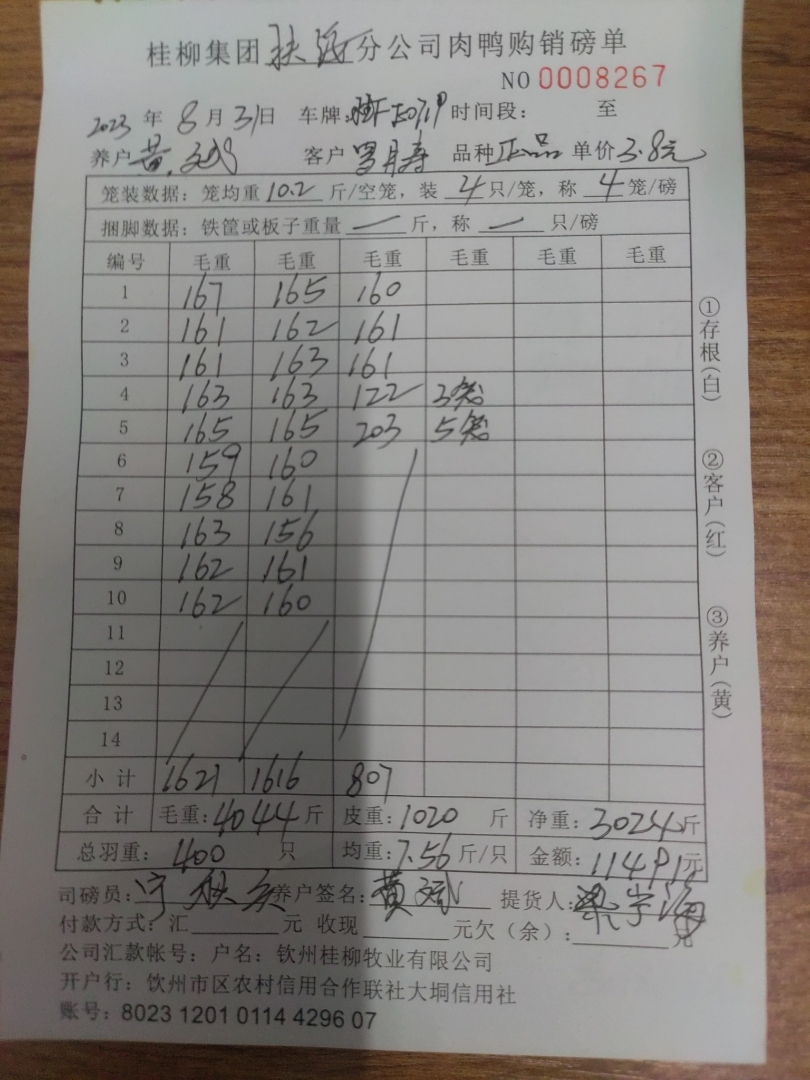 桂柳集团扶绥分公司肉鸭购销磅单
NO 0008267
2023年8月31日 车牌: 时间段: 至
养户黄 客户罗月寿 品种正品 单价3.8元
笼装数据：笼均重10.2斤/空笼，装4只/笼，称4笼/磅
捆脚数据：铁筐或板子重量一斤，称一只/磅
编号 毛重 毛重 毛重 毛重 毛重 毛重
1 167 165 160
2 161 162 161
3 161 163 161
4 163 163 122 3笼
5 165 165 203 5笼
6 159 160
7 158 161
8 163 156
9 162 161
10 162 160
11
12
13
14
小计 1621 1616 807
合计 毛重:4044斤 皮重:1020斤 净重:3024斤
总羽重:400只 均重:7.56斤/只 金额:11491元
司磅员: 养户签名:黄斌 提货人:梁
付款方式：汇 元 收现 元欠（余）: 元
公司汇款帐号：户名：钦州桂柳牧业有限公司
开户行：饮州市区农村信用合作联社大垌信用社
账号：8023 1201 0114 4296 07
①存根(白)
②客户(红)
③养户(黄)